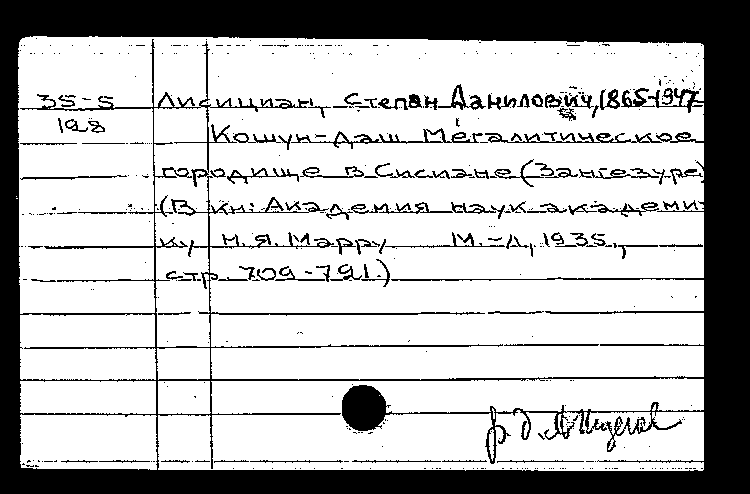 35-5 Лисициан, Степан Данилович, 1865-1947
198 Кошун-Даш Мегалитическое
городище в Сисиане (Зангезуре)
(В кн: Академия наук академи-
ку Н.Я. Марру М.-Л, 1935,
стр. 709-791.)